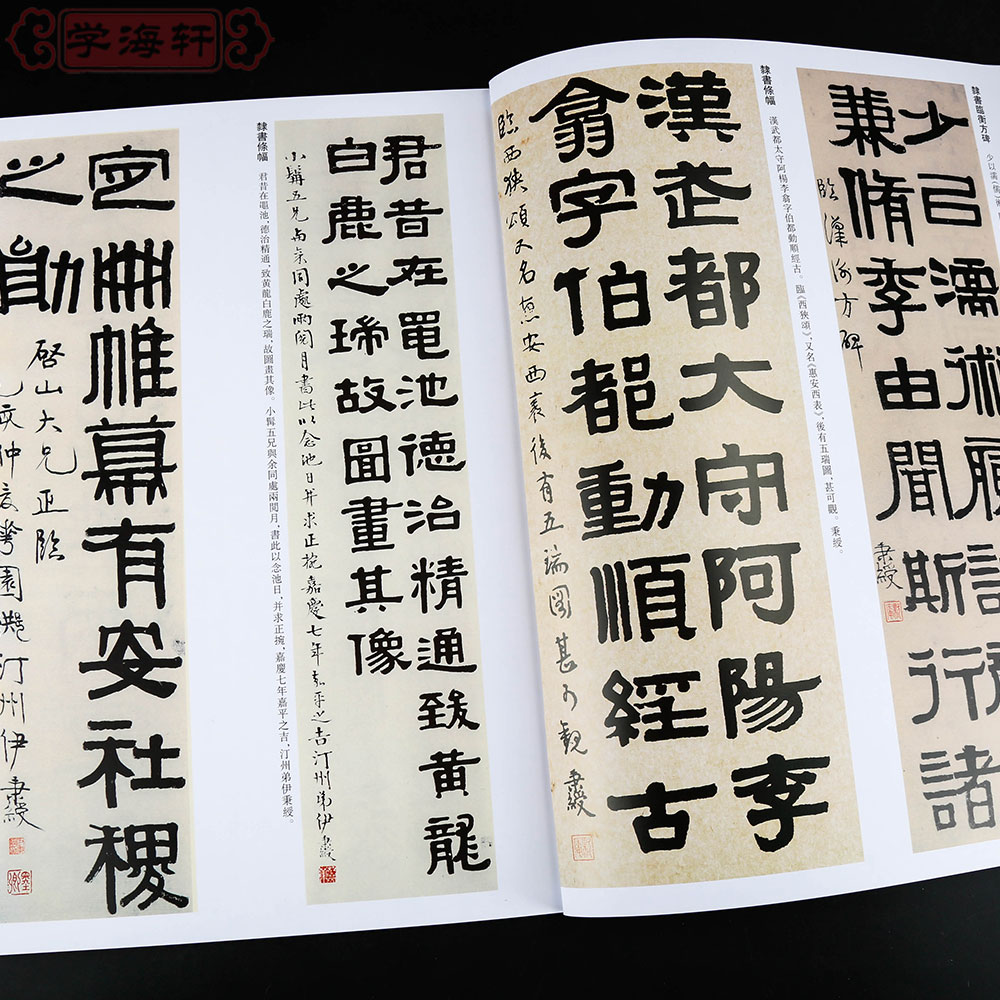 学海轩
隸書臨衡方碑
少㠯濡術履該
兼脩季由聞斯行諸
臨漢衡方碑 秉綬
隸書條幅
漢武都太守阿楊李翕字伯都動順經古。臨《西狹頌》，又名《惠安西表》，後有五瑞圖，甚可觀。秉綬。
漢武都大守阿陽李
翕字伯都動順經古
臨西狹頌又名惠安西表後有五瑞圖甚可觀 秉綬
君昔在黽池德治精通致黃龍
白鹿之瑞故圖畫其像
小髯五兄與余同處兩閱月書此以念池日并求正捥嘉慶七年嘉平之吉汀州弟伊秉綬
隸書條幅
君昔在黽池，德治精通，致黃龍白鹿之瑞，故圖畫其像。小髯五兄與余同處兩閱月，書此以念池日，并求正捥，嘉慶七年嘉平之吉，汀州弟伊秉綬。
宣冊帷幕有安社稷
之勛
啓山大兄正臨
汀州伊秉綬